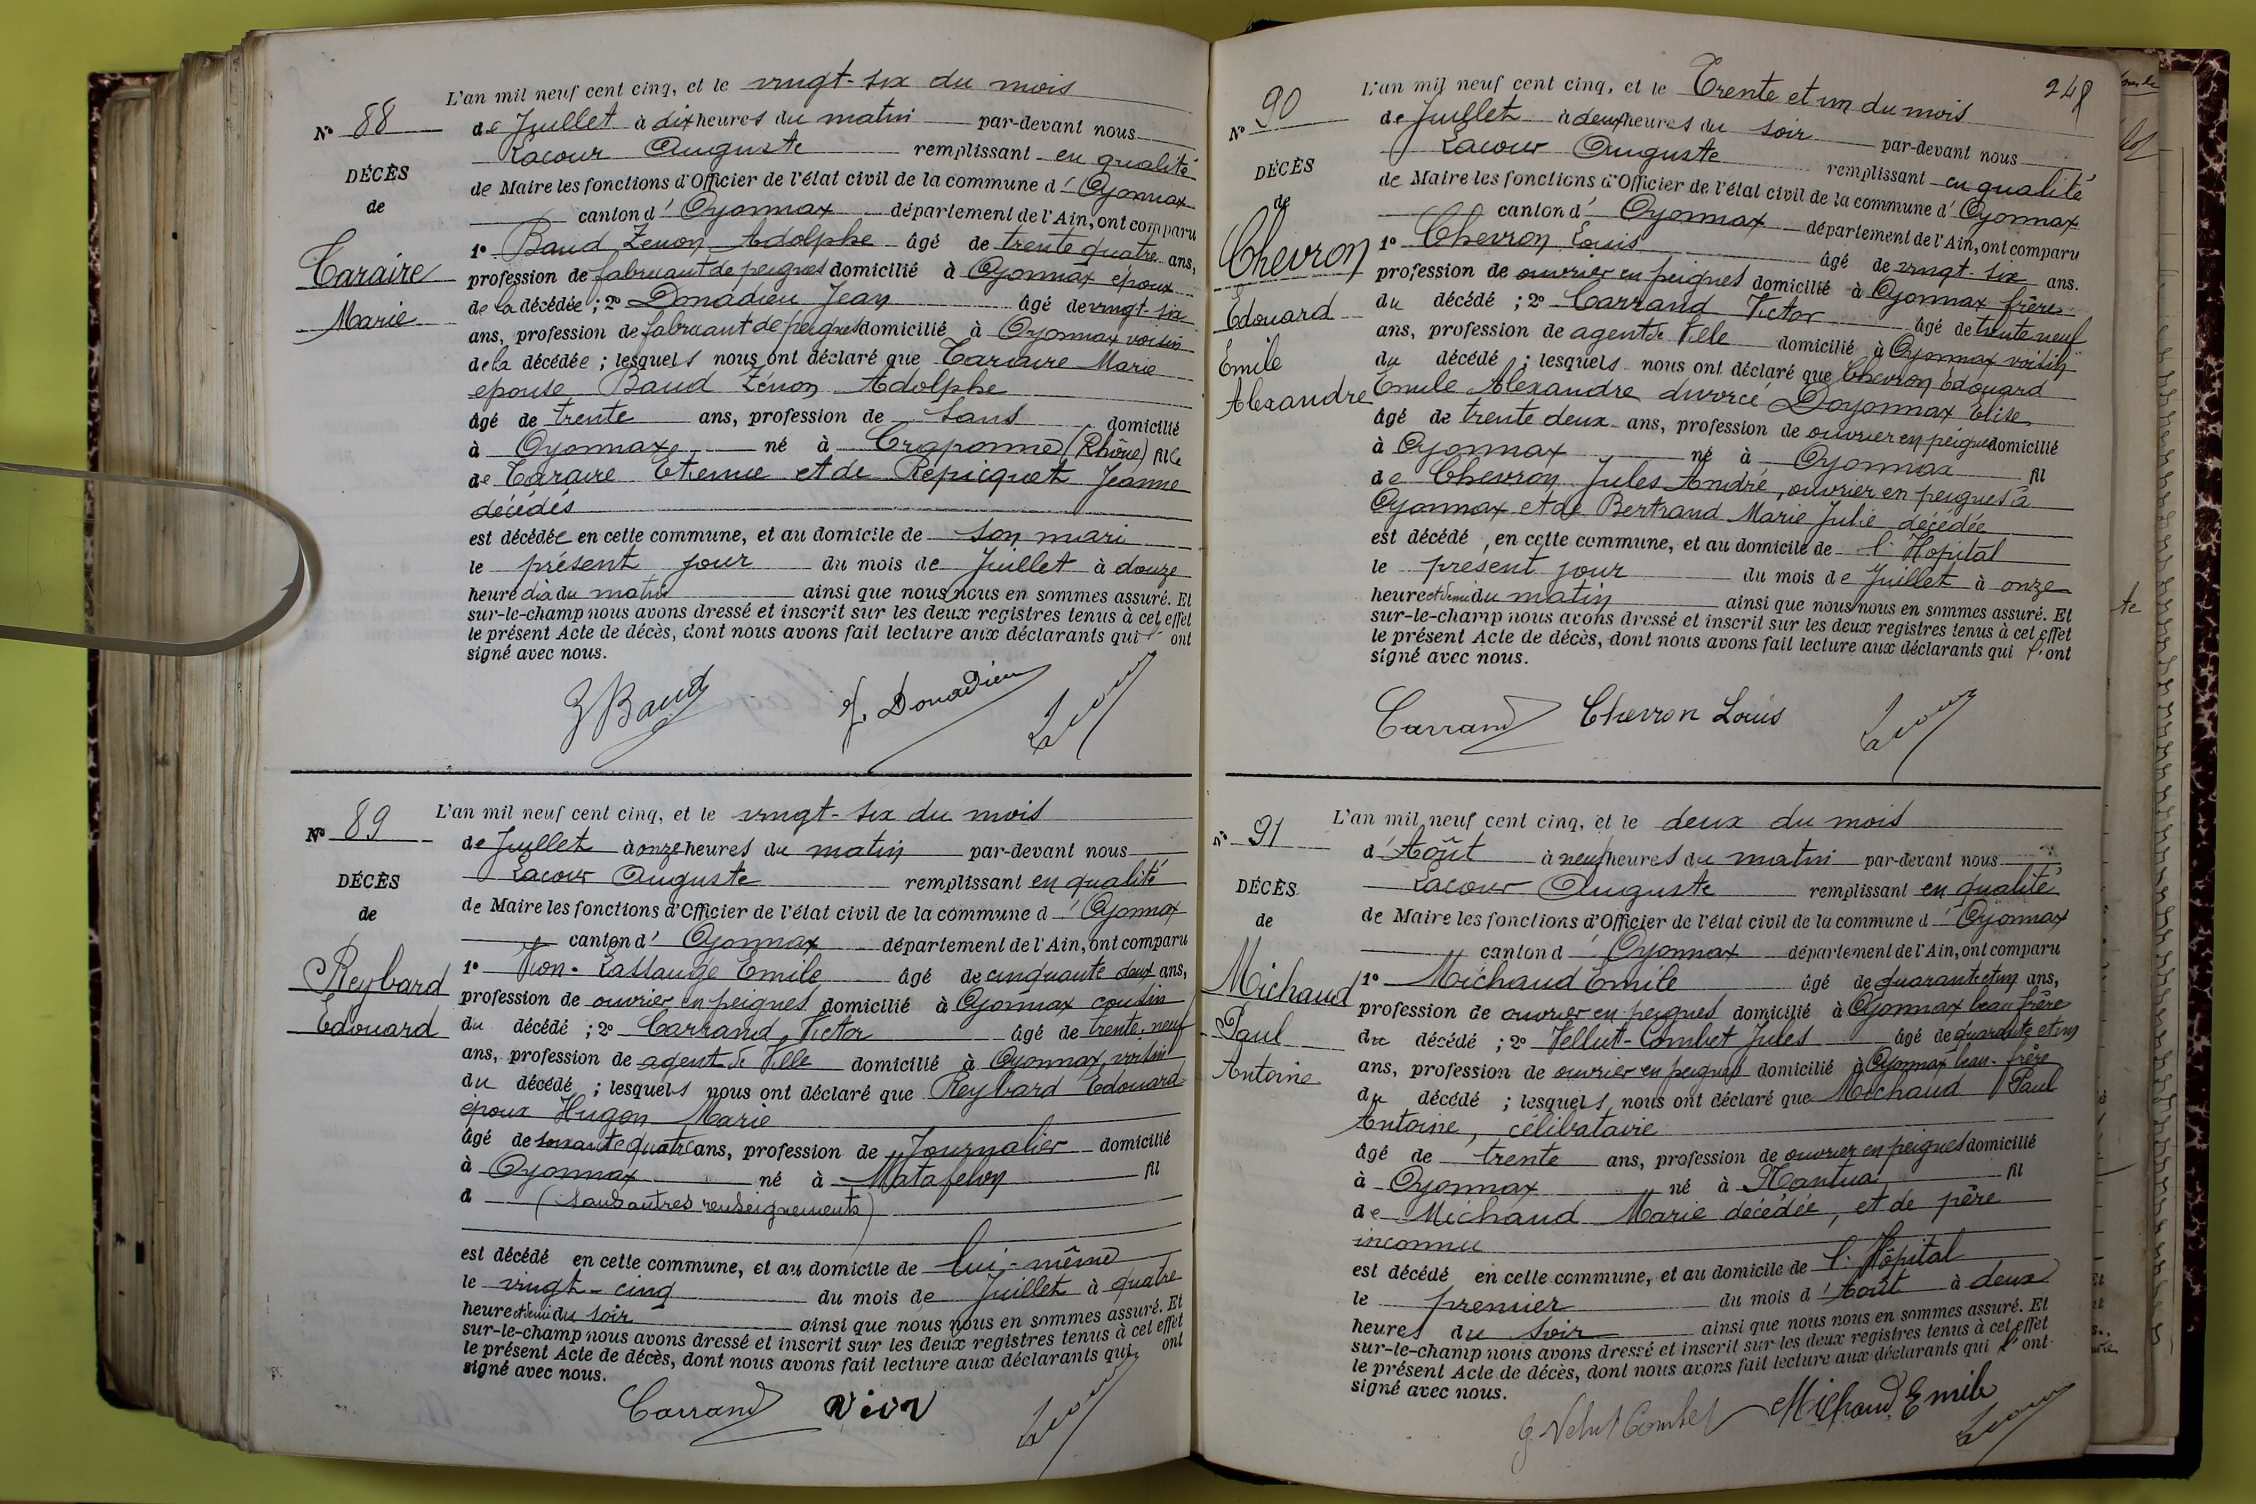 N° 88
DÉCÈS
de
Taraire
Marie
L'an mil neuf cent cinq, et le vingt-six du mois
de Juillet à dix heures du matin par-devant nous
Lacour Auguste remplissant en qualité
de Maire les fonctions d'Officier de l'état civil de la commune d'Oyonnax
canton d'Oyonnax département de l'Ain, ont comparu
1° Baud Zenon Adolphe âgé de trente quatre ans,
profession de fabricant de peignes domicilié à Oyonnax époux
de la décédée ; 2° Donadieu Jean âgé de vingt-six
ans, profession de fabricant de peignes domicilié à Oyonnax voisin
de la décédée ; lesquels nous ont déclaré que Taraire Marie
epouse Baud Zénon Adolphe
âgé de trente ans, profession de sans domicilié
à Oyonnax né à Craponne (Rhône) fille
de Taraire Etienne et de Repicquet Jeanne
décédés
est décédée en cette commune, et au domicile de son mari
le présent jour du mois de Juillet à douze
heure du matin ainsi que nous nous en sommes assuré. Et
sur-le-champ nous avons dressé et inscrit sur les deux registres tenus à cet effet
le présent Acte de décès, dont nous avons fait lecture aux déclarants qui ont
signé avec nous.
Z Baud J. Donadieu Lacour
N° 89
DÉCÈS
de
Reybard
Edouard
L'an mil neuf cent cinq, et le vingt-six du mois
de Juillet à onze heures du matin par-devant nous
Lacour Auguste remplissant en qualité
de Maire les fonctions d'Officier de l'état civil de la commune d'Oyonnax
canton d'Oyonnax département de l'Ain, ont comparu
1° Vion-Lassauge Emile âgé de cinquante deux ans,
profession de ouvrier en peignes domicilié à Oyonnax cousin
du décédé ; 2° Carrand Victor âgé de trente-neuf
ans, profession de agent de Ville domicilié à Oyonnax voisin
du décédé ; lesquels nous ont déclaré que Reybard Edouard
époux Hugon Marie
âgé de soixante quatre ans, profession de Journalier domicilié
à Oyonnax né à Matafelon fil
d (sans autres renseignements)
est décédé en cette commune, et au domicile de lui-même
le vingt-cinq du mois de Juillet à quatre
heure et demi du soir ainsi que nous nous en sommes assuré. Et
sur-le-champ nous avons dressé et inscrit sur les deux registres tenus à cet effet
le présent Acte de décès, dont nous avons fait lecture aux déclarants qui ont
signé avec nous.
Carrand Vion Lacour
248
N° 90
DÉCÈS
de
Chevron
Edouard
Emile
Alexandre
L'an mil neuf cent cinq, et le Trente et un du mois
de Juillet à deux heures du soir par-devant nous
Lacour Auguste remplissant en qualité
de Maire les fonctions d'Officier de l'état civil de la commune d'Oyonnax
canton d'Oyonnax département de l'Ain, ont comparu
1° Chevron Louis âgé de vingt-six ans.
profession de ouvrier en peignes domicilié à Oyonnax frères
du décédé ; 2° Carrand Victor âgé de trente neuf
ans, profession de agent de Ville domicilié à Oyonnax voisin
du décédé ; lesquels nous ont déclaré que Chevron Edouard
Emile Alexandre divorcé Doyonnax Elise
âgé de trente deux ans, profession de ouvrier en peignes domicilié
à Oyonnax né à Oyonnax fil
de Chevron Jules André, ouvrier en peignes à
Oyonnax et de Bertrand Marie Julie décédée
est décédé, en cette commune, et au domicile de l'Hopital
le présent jour du mois de Juillet à onze
heure et demi du matin ainsi que nous nous en sommes assuré. Et
sur-le-champ nous avons dressé et inscrit sur les deux registres tenus à cet effet
le présent Acte de décès, dont nous avons fait lecture aux déclarants qui l'ont
signé avec nous.
Carrand Chevron Louis Lacour
N° 91
DÉCÈS
de
Michaud
Paul
Antoine
L'an mil neuf cent cinq, et le deux du mois
d'Août à neuf heures du matin par-devant nous
Lacour Auguste remplissant en qualité
de Maire les fonctions d'Officier de l'état civil de la commune d'Oyonnax
canton d'Oyonnax département de l'Ain, ont comparu
1° Michaud Emile âgé de quarante et un ans,
profession de ouvrier en peignes domicilié à Oyonnax beau frère
du décédé ; 2° Vellut-Combet Jules âgé de quarante et un
ans, profession de ouvrier en peignes domicilié à Oyonnax beau-frère
du décédé ; lesquels nous ont déclaré que Michaud Paul
Antoine, célibataire
âgé de trente ans, profession de ouvrier en peignes domicilié
à Oyonnax né à Nantua fil
de Michaud Marie décédée, et de père
inconnu
est décédé en cette commune, et au domicile de l'Hôpital
le premier du mois d'Août à deux
heures du soir ainsi que nous nous en sommes assuré. Et
sur-le-champ nous avons dressé et inscrit sur les deux registres tenus à cet effet
le présent Acte de décès, dont nous avons fait lecture aux déclarants qui l'ont
signé avec nous.
J. Velut Combet Michaud Emile Lacour